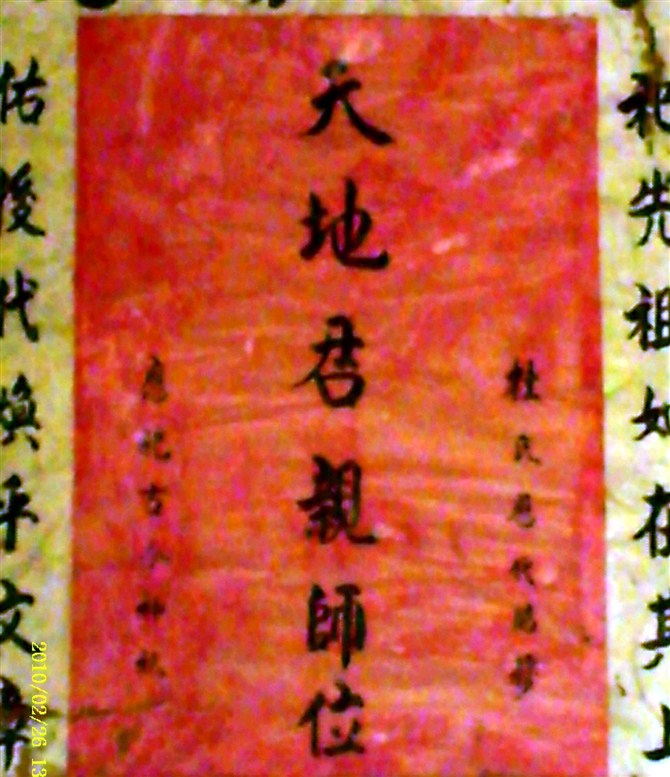 祀先祖如在其上
杜氏歷代昭穆
天地君親師位
應祀古今神祇
佑後代煥乎文章
2010/02/26 13